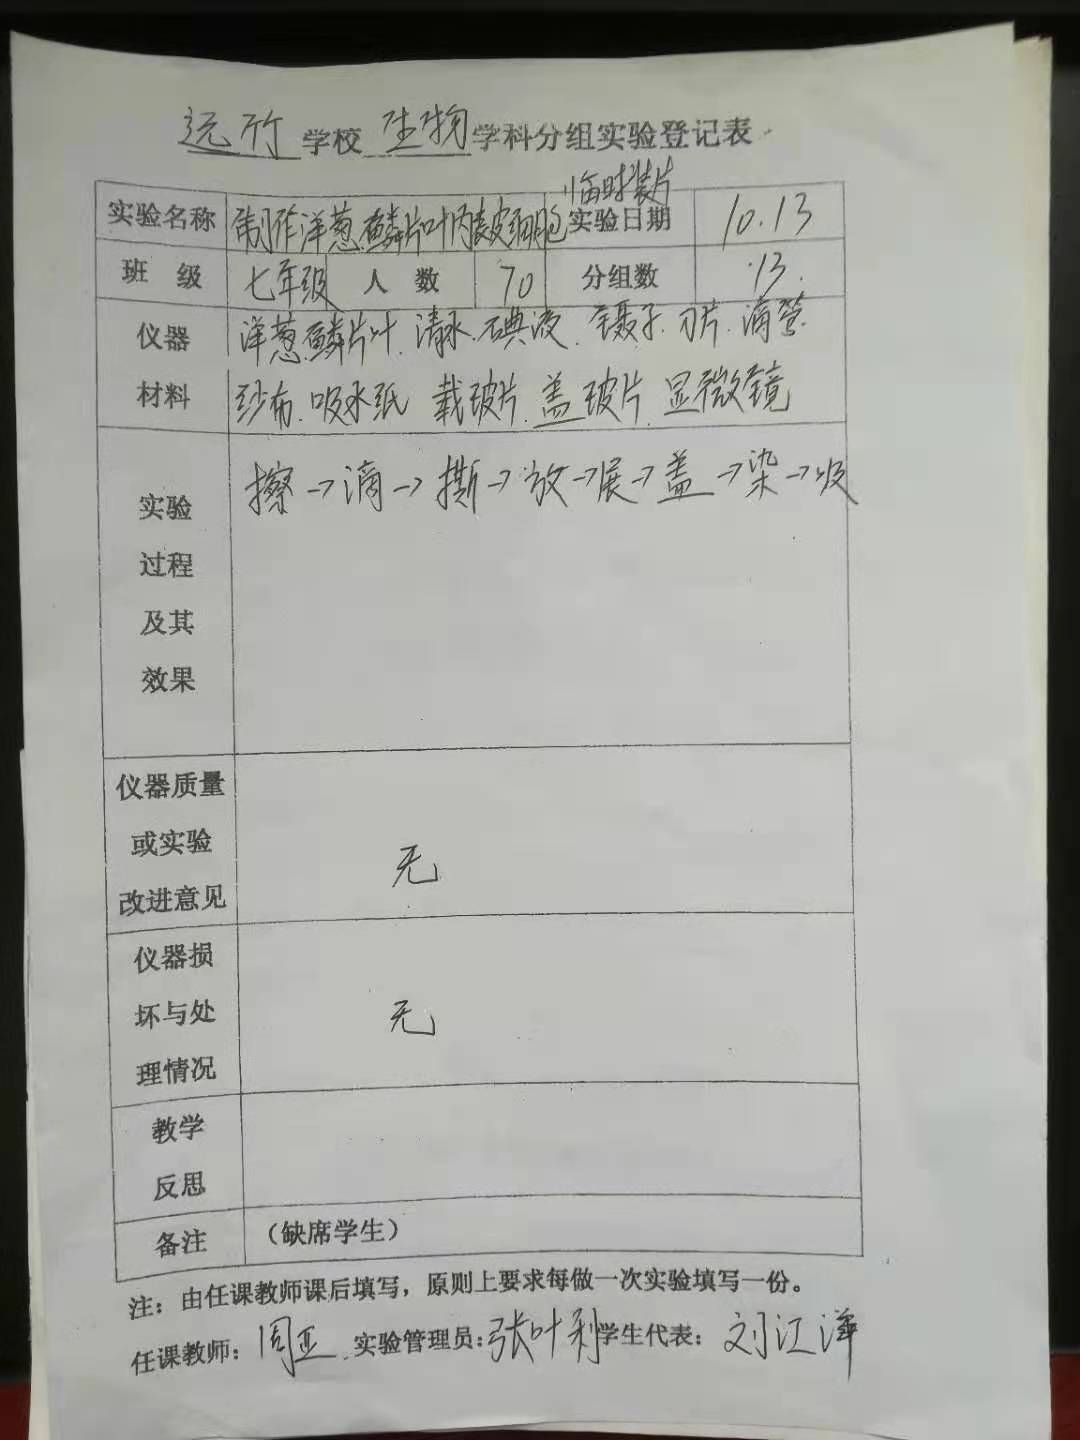 远竹学校 生物 学科分组实验登记表
临时装片
实验名称 制作洋葱鳞片叶内表皮细胞 实验日期 10.13
班 级 七年级 人 数 70 分组数 13.
仪器 洋葱鳞片叶.清水.碘液.镊子.刀片.滴管.
材料 纱布.吸水纸 载玻片.盖玻片.显微镜
擦→滴→撕→放→展→盖→染→吸
实验
过程
及其
效果
仪器质量
或实验
无
改进意见
仪器损
坏与处
无
理情况
教学
反思
备注 （缺席学生）
注：由任课教师课后填写，原则上要求每做一次实验填写一份。
任课教师：周亚 实验管理员：张叶利 学生代表：刘江洋